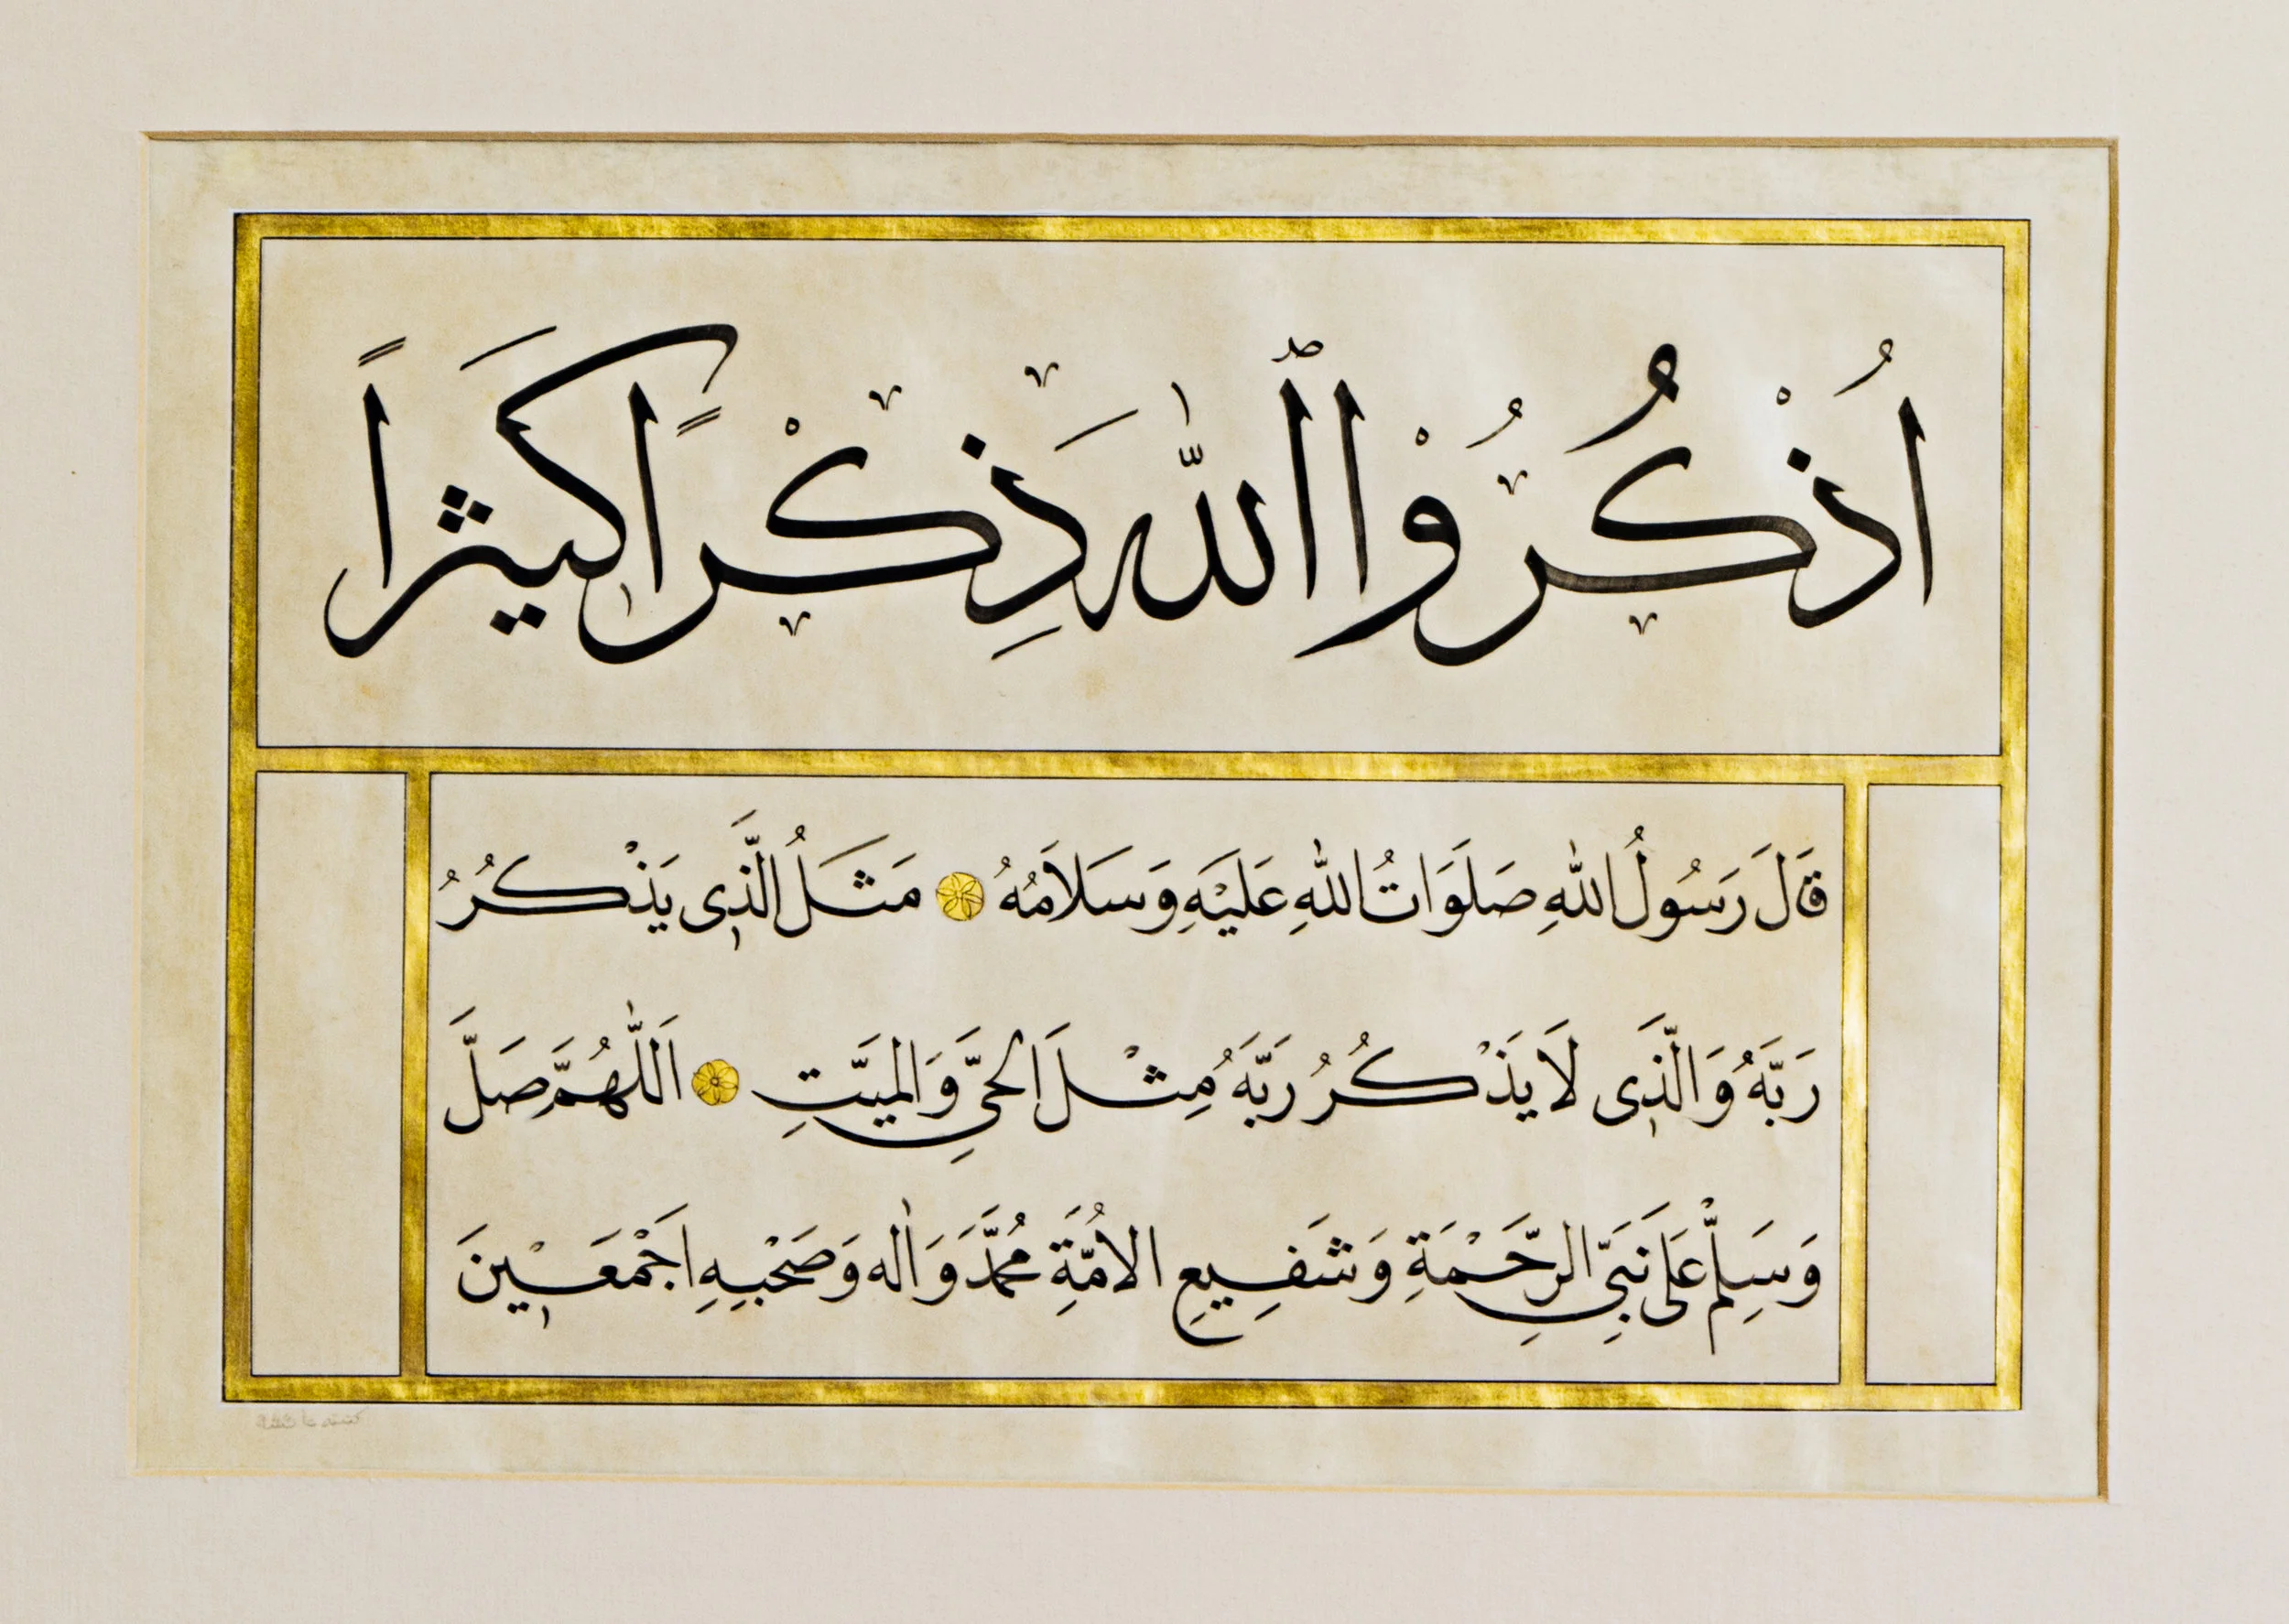 اُذْكُرُوْا ٱللّٰهَ ذِكْرًا كَثيرًا
قَالَ رَسُولُ اللّٰهِ صَلَوَاتُ اللّٰهِ عَلَيْهِ وَسَلَامُهُ مَثَلُ الَّذٖى يَذْكُرُ
رَبَّهُ وَالَّذٖى لَا يَذْكُرُ رَبَّهُ مِثْلَ الحَىِّ وَالمَيِّتِ اَللّٰهُمَّ صَلِّ
وَسَلِّمْ عَلَى نَبِىِّ الرَّحْمَةِ وَشَفِيعِ الاُمَّةِ مُحَمَّدَ وَاٰله وَصَحْبِهِ اَجْمَعٖينَ